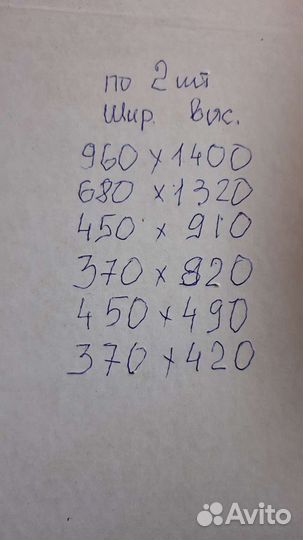 по 2 шт
Шир. Выс.
960 x 1400
680 x 1320
450 x 910
370 x 820
450 x 490
370 x 420
Avito